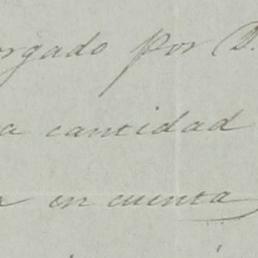 orgado por D.
a cantidad
en cuenta